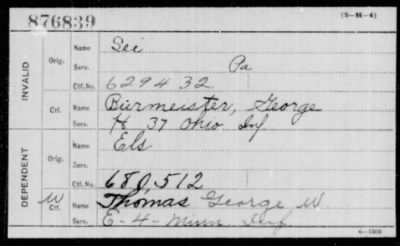 876839
(3-H-4)
INVALID
Orig.
Name Sei
Serv. Pa
Ctf. No. 629432
Ctf.
Name Burmeister, George
Serv. H 37 Ohio Inf
DEPENDENT
Orig.
Name Els
Serv.
Ctf. No. 680,512
W
Ctf.
Name Thomas George W
Serv. E-4-Minn Inf